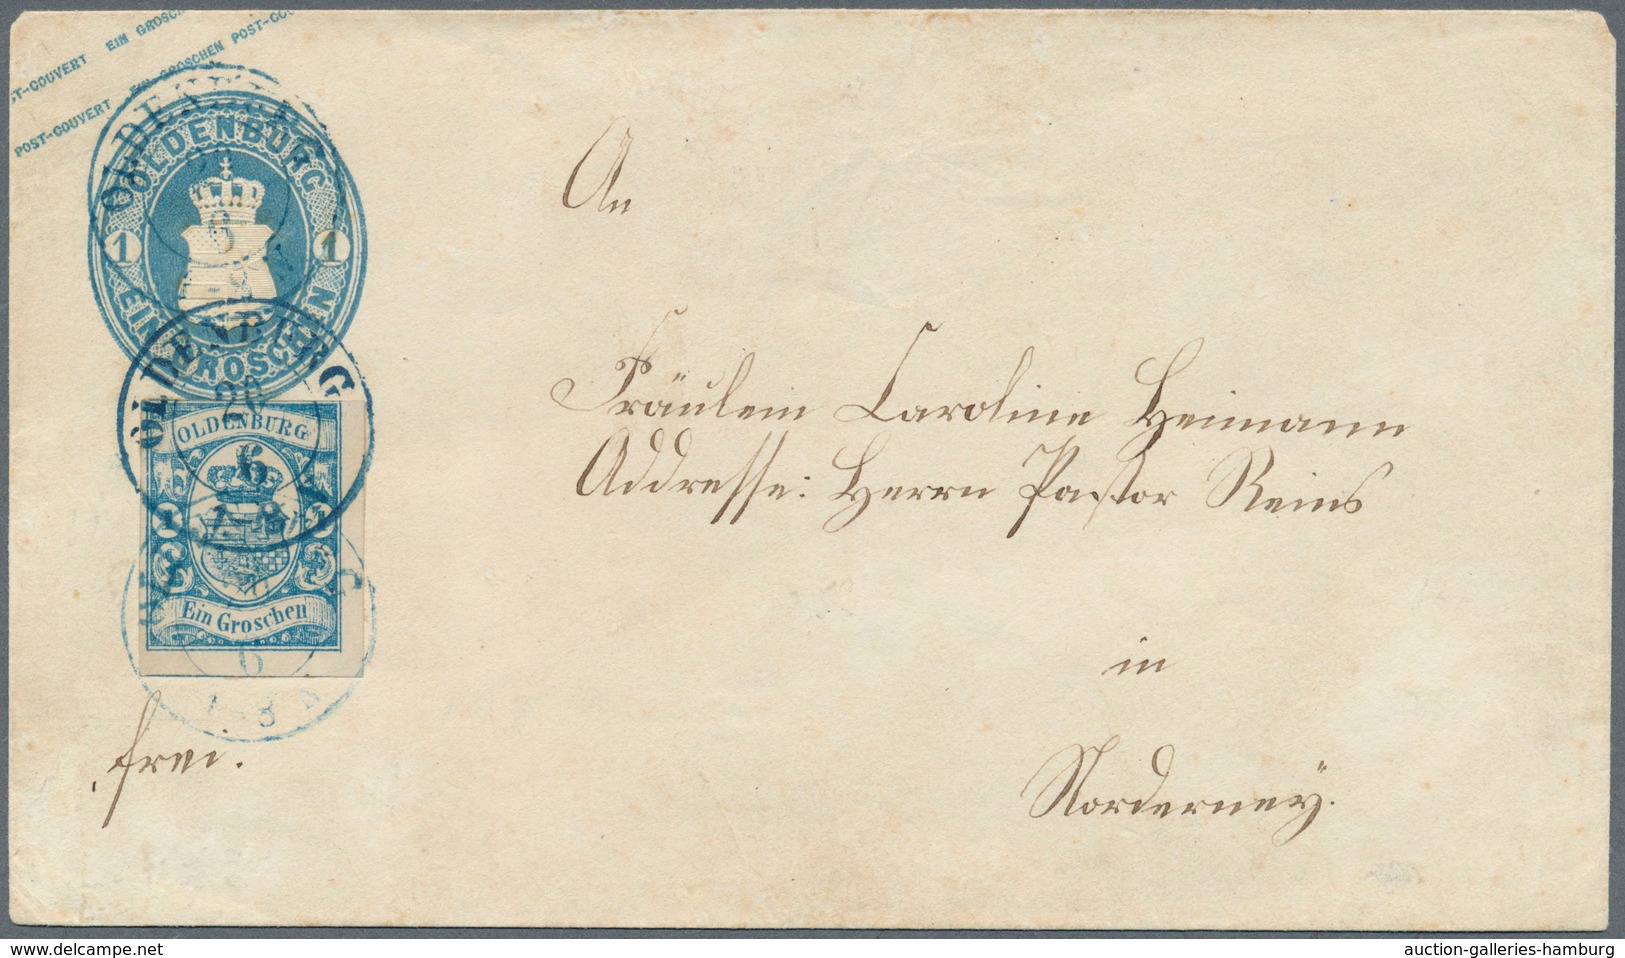 POST-COUVERT EIN GROSCHEN
POST-COUVERT EIN GROSCHEN POST-COUVERT
OLDENBURG
6
OLDENBURG
1 1
EIN GROSCHEN
OLDENBURG
20
6
7-8
OLDENBURG
1 1
Ein Groschen
6
7-8
An
Fräulein Caroline Heimann
Addresse: Herrn Pastor Reins
in
Norderney.
frei.
www.delcampe.net
auction-galleries-hamburg